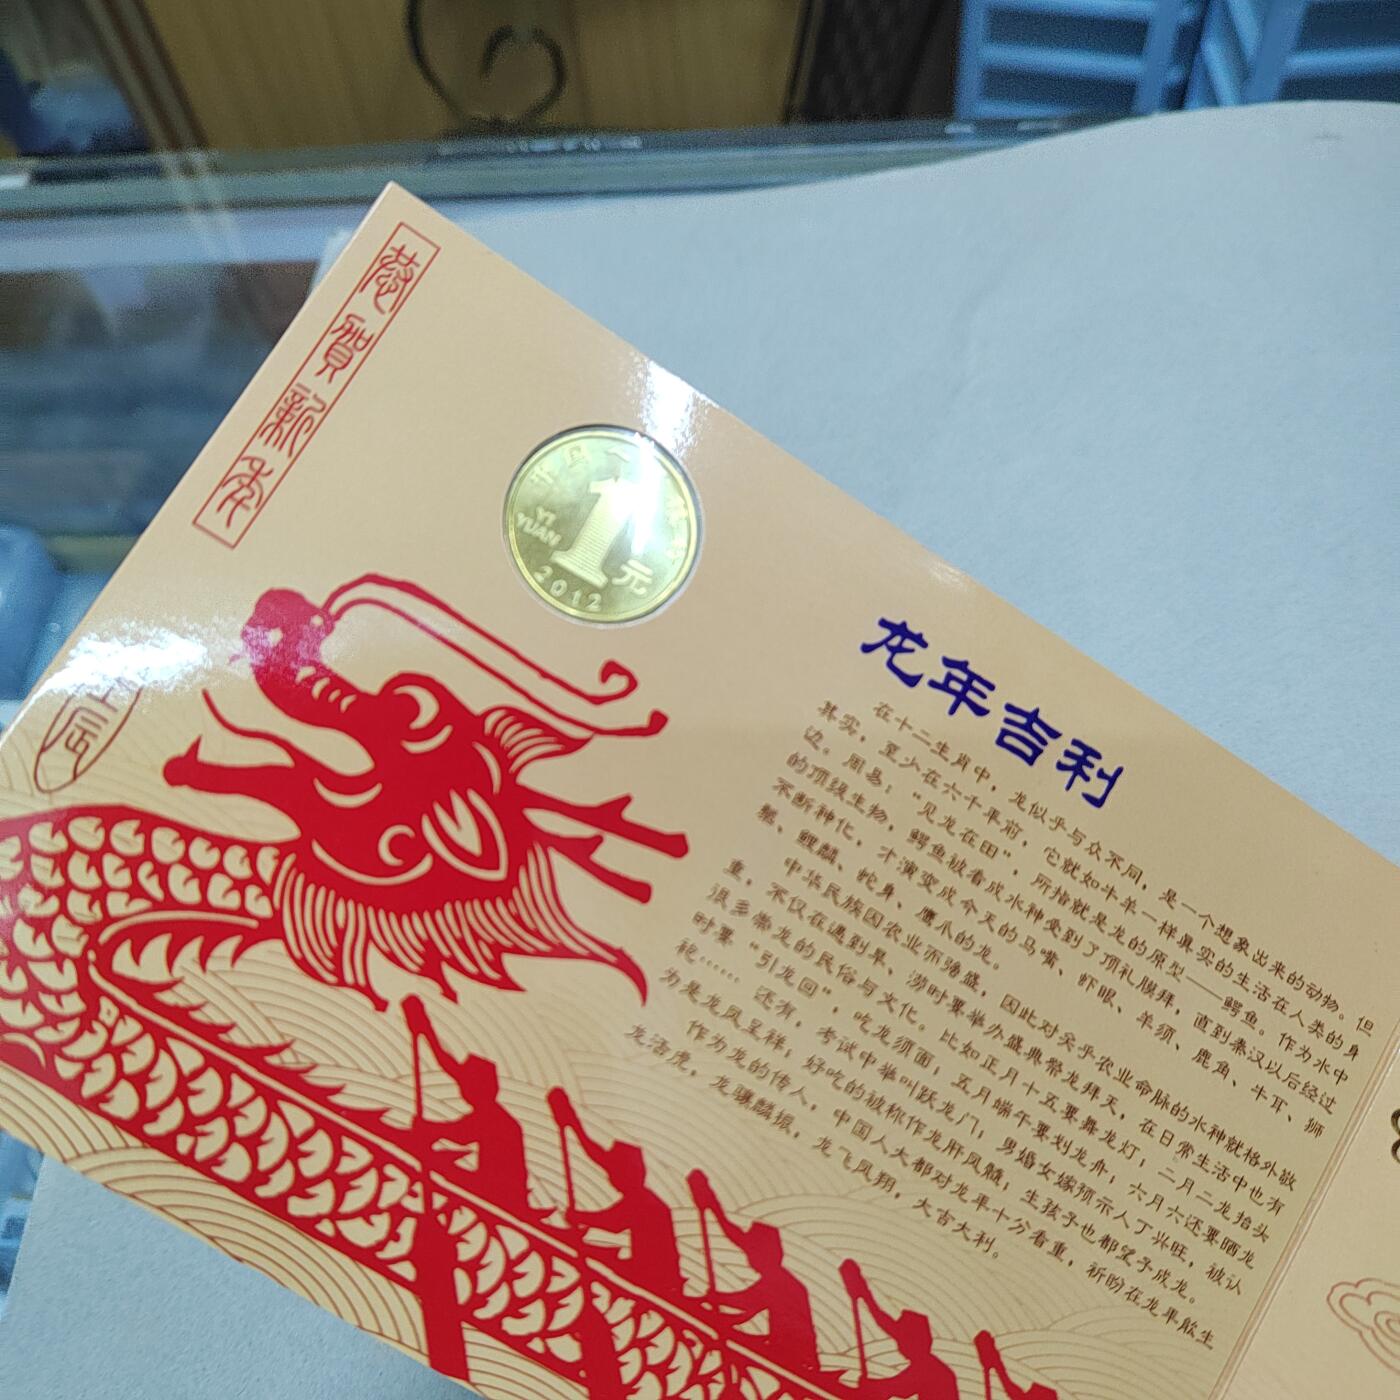 恭贺新年
中国人民银行
YI
YUAN
1元
2012
壬辰
龙年吉利
在十二生肖中，龙似乎与众不同，是一个想象出来的动物。但
其实，至少在六十年前，它就如牛羊一样真实的生活在人类的身
边。周易：“见龙在田”，所指就是龙的原型——鳄鱼。作为水中
的顶级生物，鳄鱼被看成水神受到了顶礼膜拜，直到秦汉以后经过
不断神化，才演变成今天的马嘴、虾眼、羊须、鹿角、牛耳、狮
鬃、鲤鳞、蛇身、鹰爪的龙。
中华民族因农业而强盛，因此对关乎农业命脉的水神就格外敬
重，不仅在遇到旱、涝时要举办盛典祭龙拜天，在日常生活中也有
很多崇龙的民俗与文化。比如正月十五要舞龙灯；二月二龙抬头
时要“引龙回”，吃龙须面；五月端午要划龙舟；六月六还要晒龙
袍……还有，考试中举叫跃龙门；男婚女嫁预示人丁兴旺，被认
为是龙凤呈祥；好吃的被称作龙肝凤髓；生孩子也都望子成龙。
作为龙的传人，中国人大都对龙年十分看重，祈盼在龙年能生
龙活虎，龙骧麟振，龙飞凤翔，大吉大利。